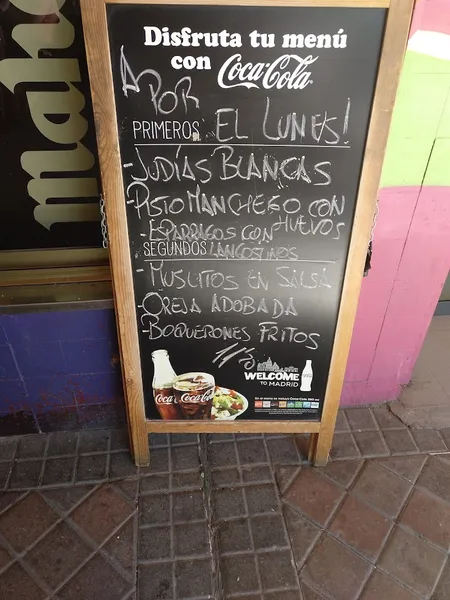 Disfruta tu menú
con Coca-Cola
A POR
PRIMEROS EL LUNES!
- JUDÍAS BLANCAS
- PISTO MANCHEGO CON HUEVOS
- ESPARRAGOS CON
SEGUNDOS LANGOSTINOS
- MUSLITOS EN SALSA
- OREJA ADOBADA
- BOQUERONES FRITOS
WELCOME
TO MADRID
Coca-Cola
mah